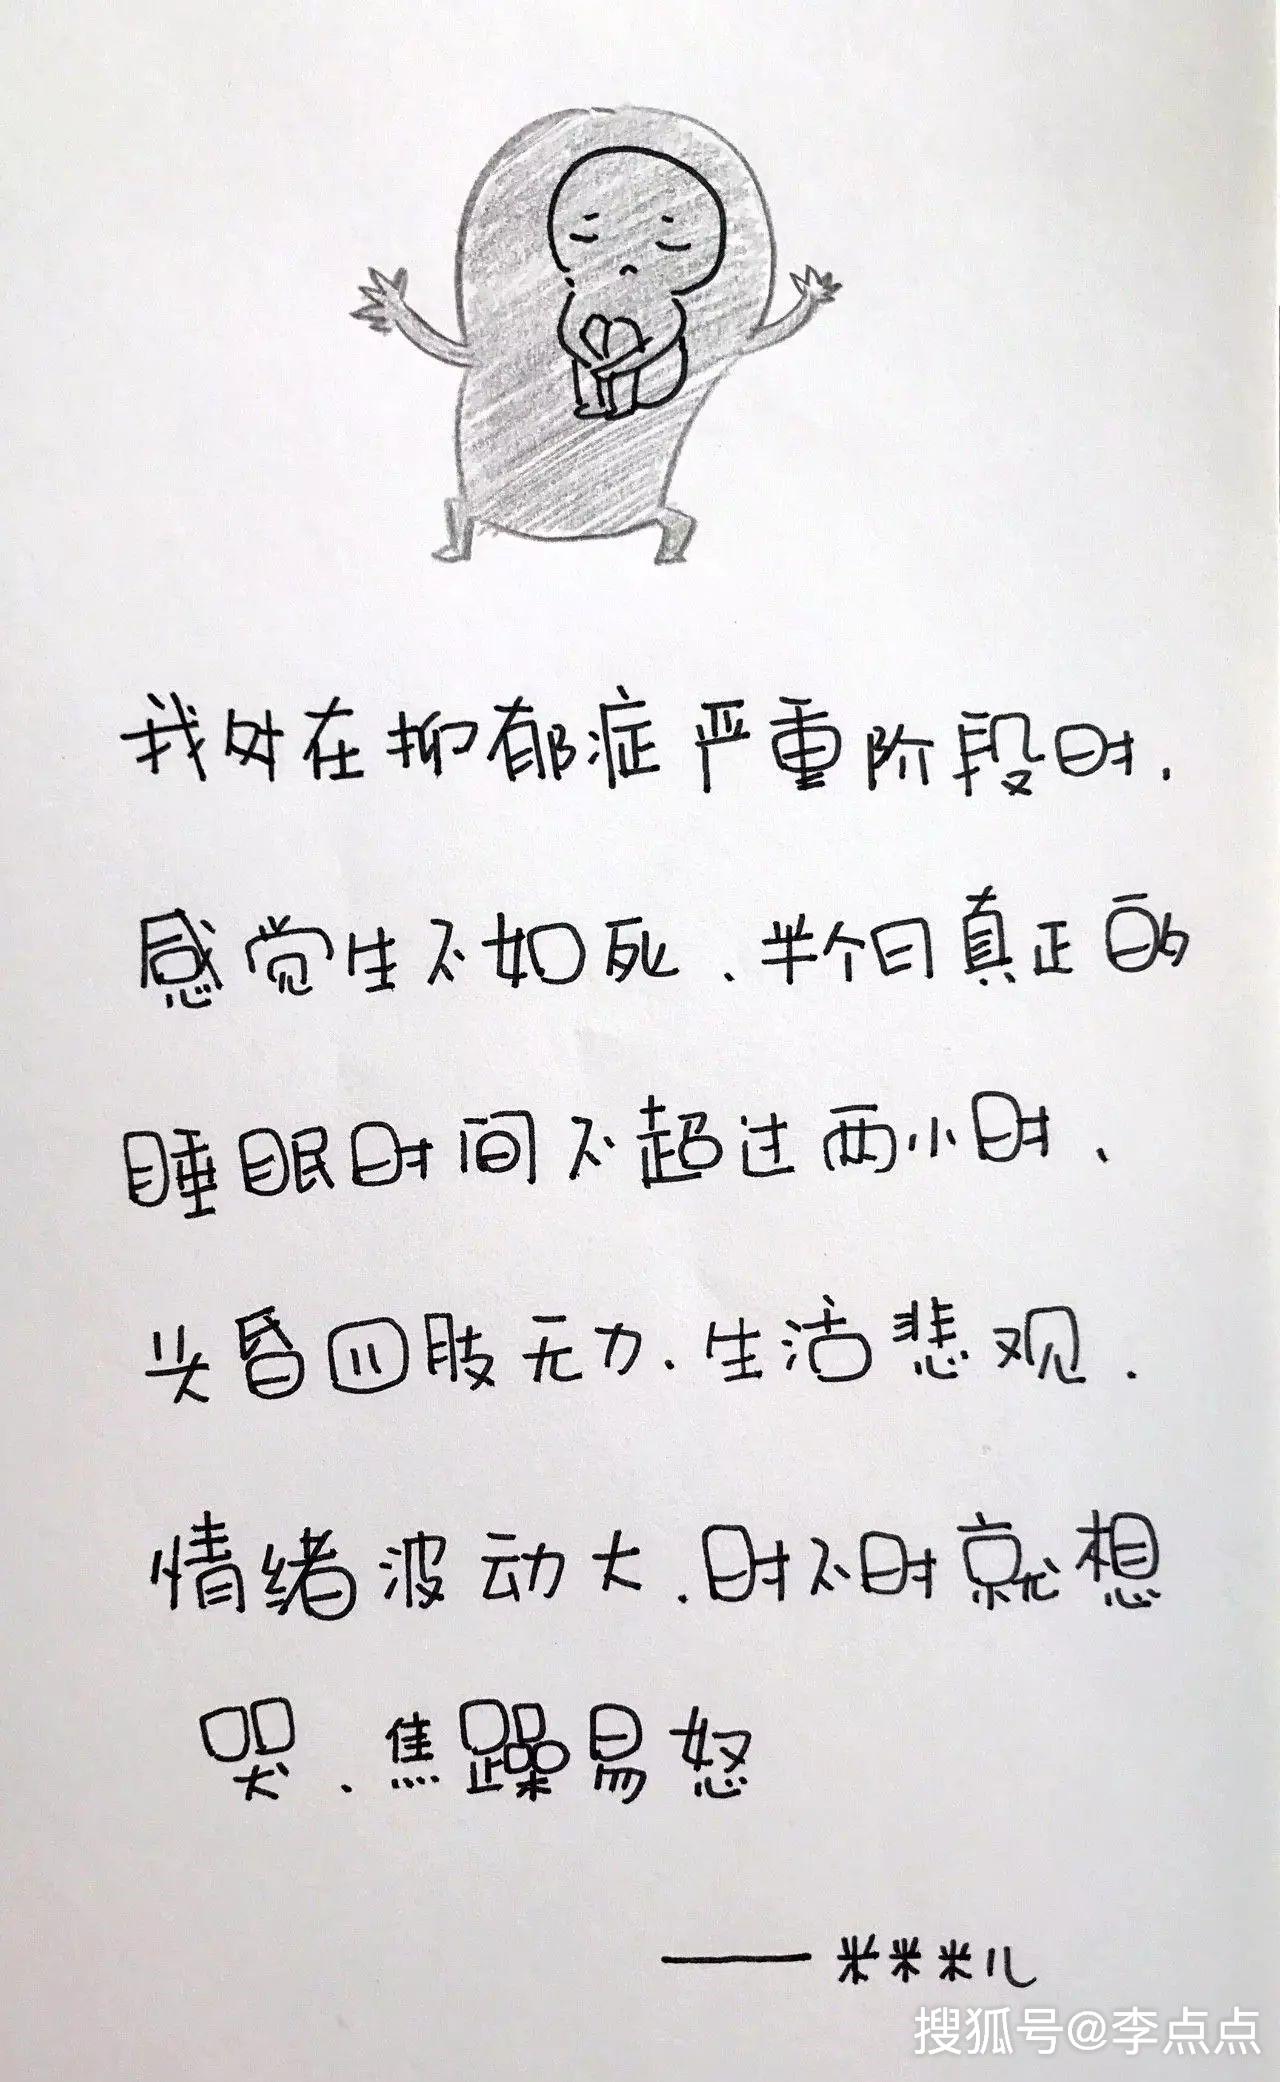 我处在抑郁症严重阶段时.
感觉生不如死、半个月真正的
睡眠时间不超过两小时、
头昏四肢无力、生活悲观.
情绪波动大.时不时就想
哭、焦躁易怒
——米米米儿
搜狐号@李点点